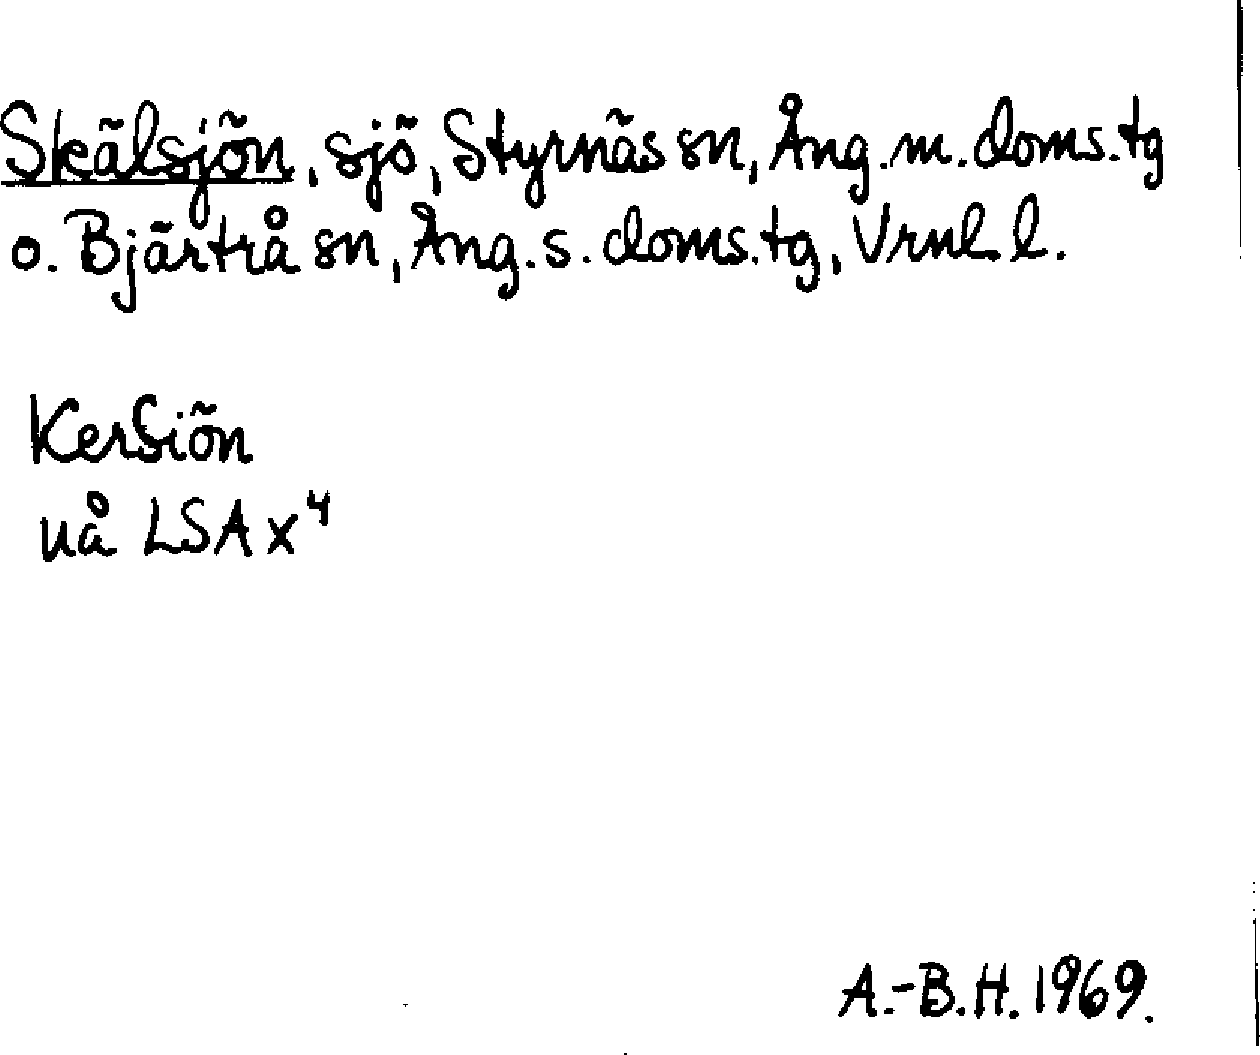 Skälsjön, sjö, Styrnäs sn, Ång. m. doms. tg
o. Bjärtrå sn, Ång. s. doms. tg, Vrnl l.
Kersiön
uå LSA x⁴
A.-B.H. 1969.